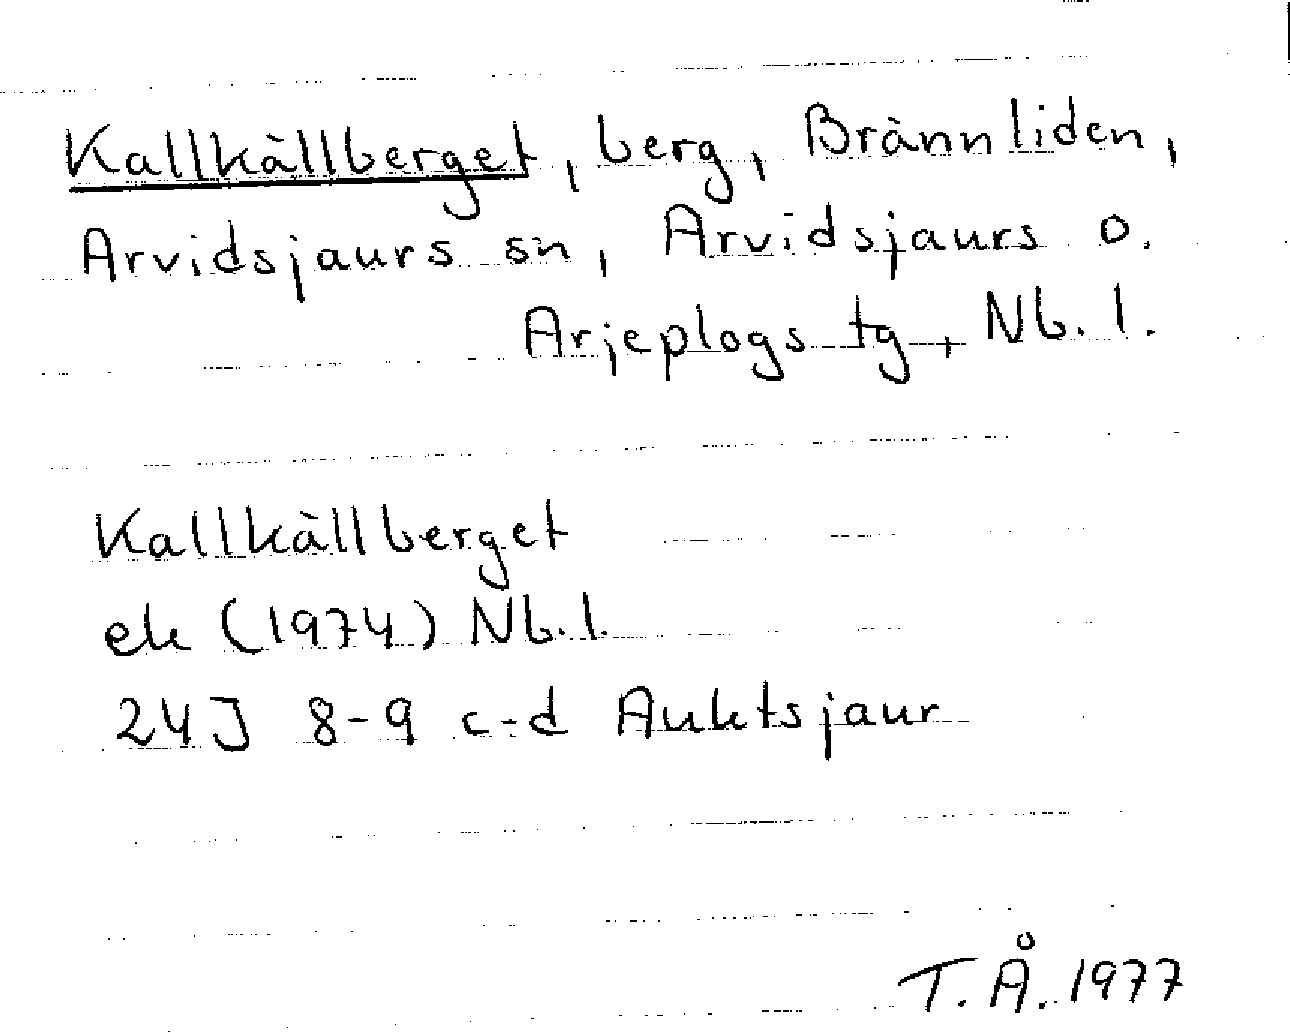 Kallkällberget, berg, Brännliden,
Arvidsjaurs sn, Arvidsjaurs o.
Arjeplogs tg, Nb. l.
Kallkällberget
ek (1974) Nb. l.
24J 8-9 c-d Auktsjaur
T. Å. 1977